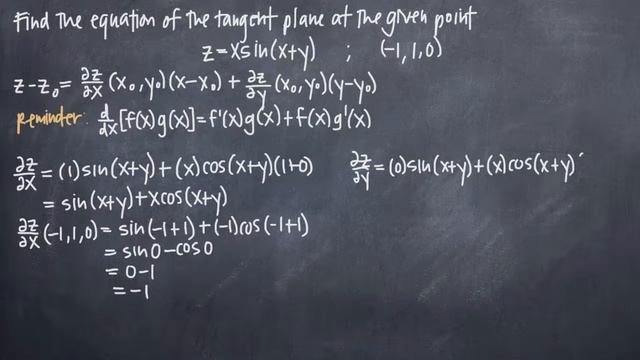 Find the equation of the tangent plane at the given point
z=xsin(x+y) ; (-1,1,0)
z-z₀ = ∂z/∂x (x₀,y₀)(x-x₀) + ∂z/∂y (x₀,y₀)(y-y₀)
reminder: d/dx [f(x)g(x)] = f'(x)g(x)+f(x)g'(x)
∂z/∂x = (1)sin(x+y)+(x)cos(x+y)(1+0)
= sin(x+y)+xcos(x+y)
∂z/∂x (-1,1,0) = sin(-1+1)+(-1)cos(-1+1)
= sin0-cos0
= 0-1
= -1
∂z/∂y = (0)sin(x+y)+(x)cos(x+y)